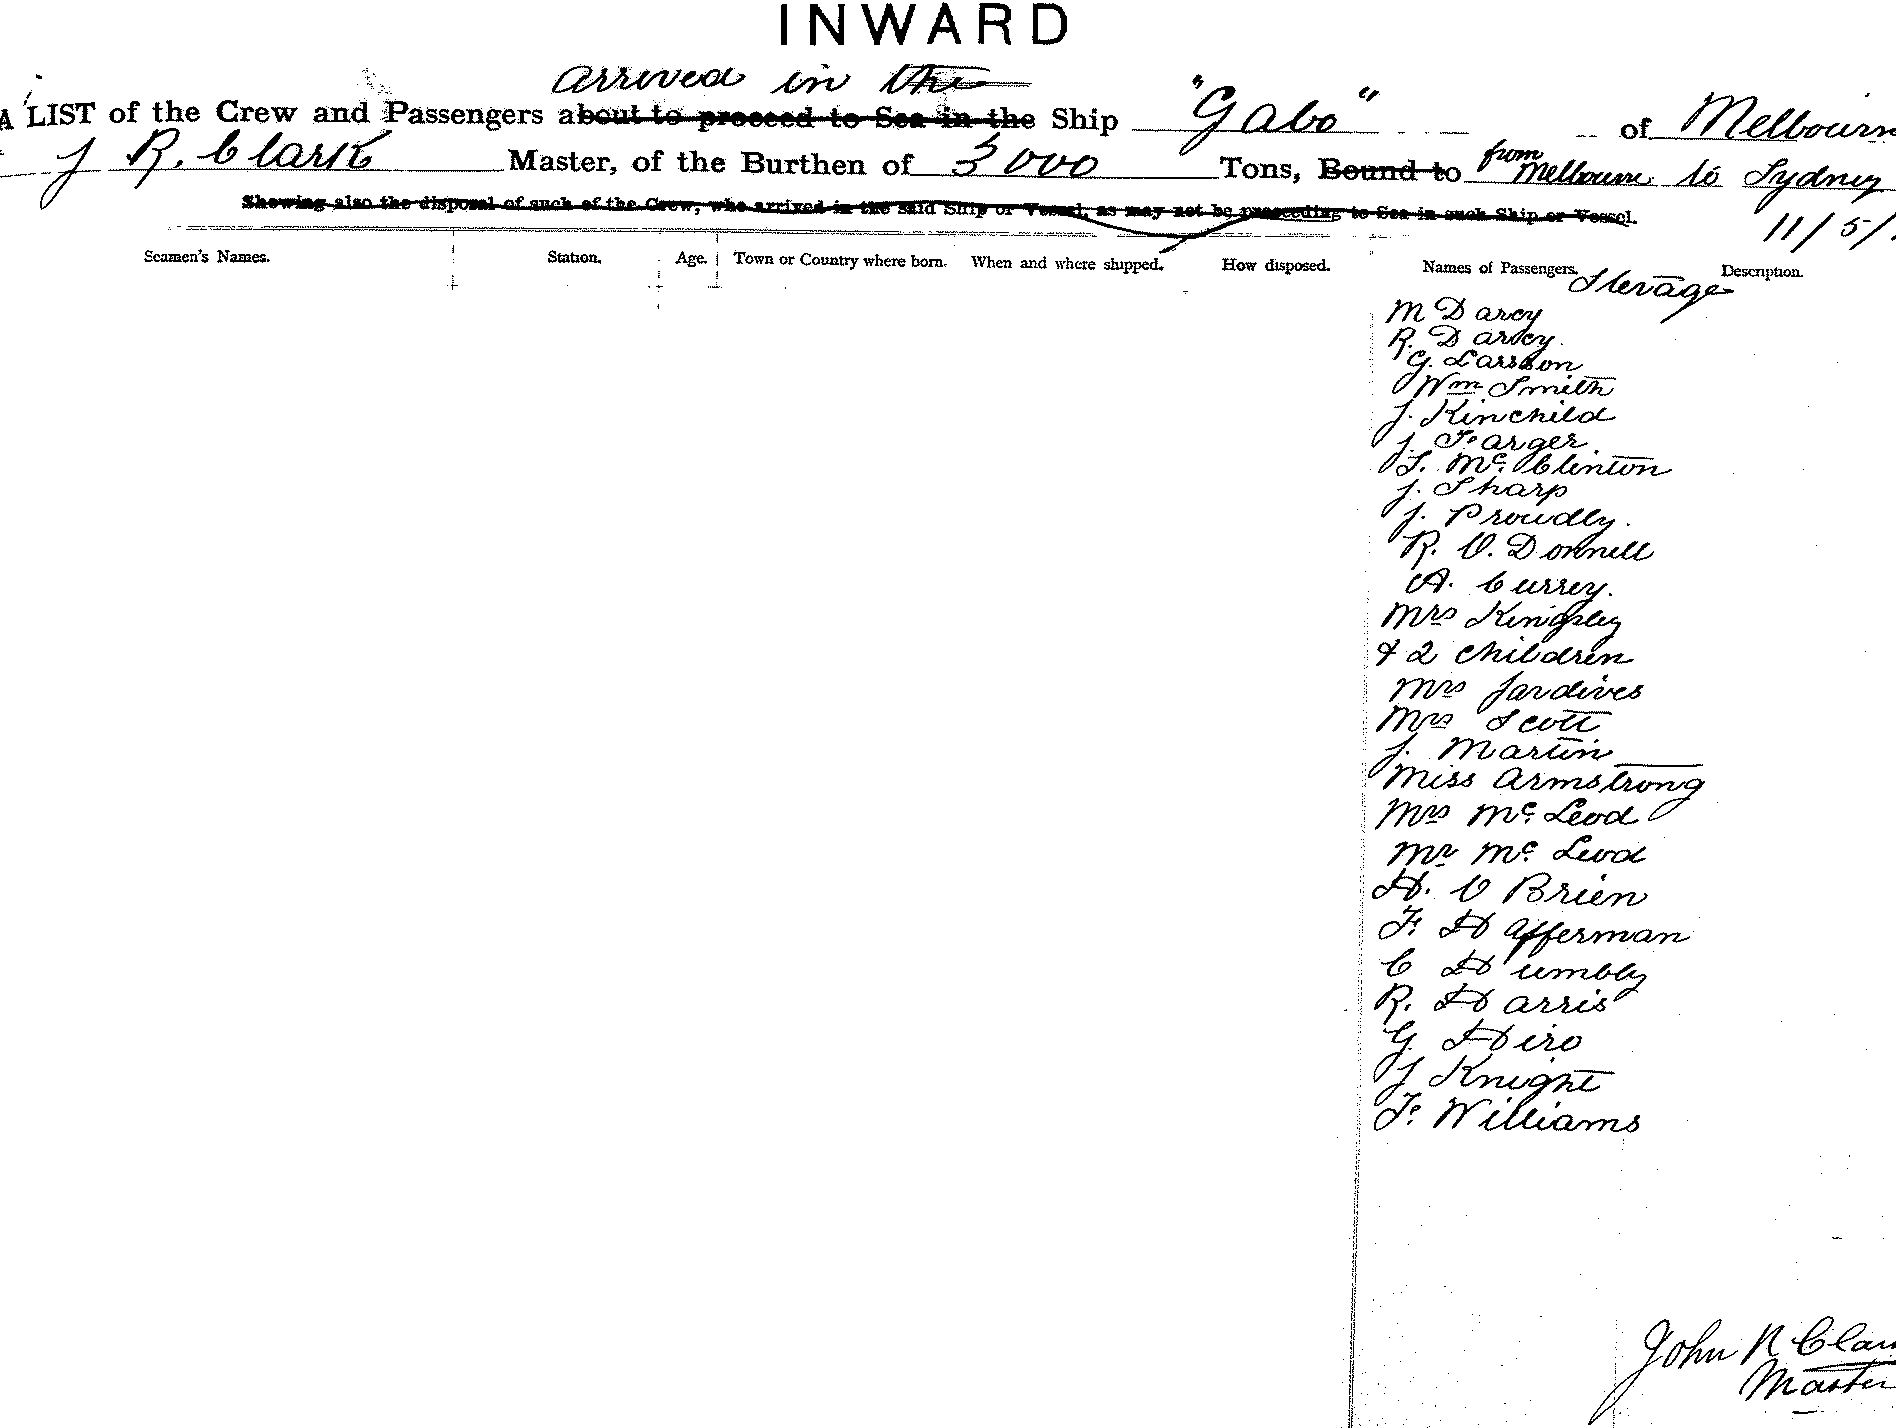 INWARD
arrived in the
A LIST of the Crew and Passengers about to proceed to Sea in the Ship "Gabo" of Melbourn
J R. Clark Master, of the Burthen of 3000 Tons, Bound to from Melbourne to Sydney
Showing also the disposal of such of the Crew, who arrived in the said Ship or Vessel, as may not be proceeding to Sea in such Ship or Vessel.
11/5/
Seamen's Names. Station. Age. Town or Country where born. When and where shipped. How disposed. Names of Passengers. Description.
Sterage
M Darcy
R. Darcy.
G. Larsson
Wm Smith
J. Kinchild
J. Farger
T. Mc. Clinton
J. Sharp
J. Proudly.
R. O. Donnell
A. Currey.
Mrs Kingsley
& 2 children
Mrs Jardives
Mrs Scott
J. Martin
Miss Armstrong
Mrs Mc. Leod
Mr Mc. Leod
H. O Brien
F. Hafferman
C Humbly
R. Harris
G. Hiro
J Knight
F. Williams
John R Clar
Master